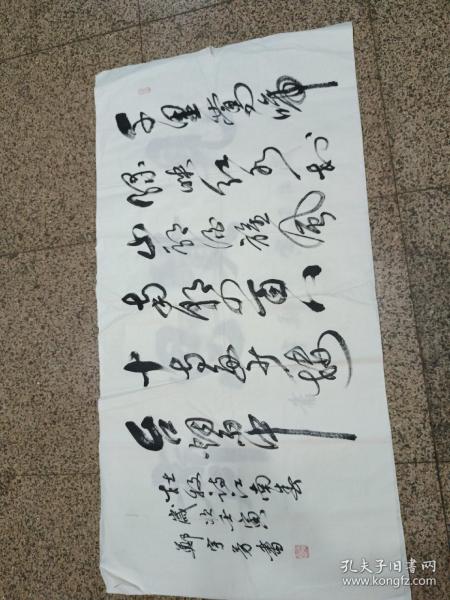 千里鶯啼
绿映红水村
山郭酒旗风
南朝四百八
十寺多少楼
台烟雨中
杜牧诗江南春
岁次壬寅
鄭 書
孔夫子旧书网
www.kongfz.com